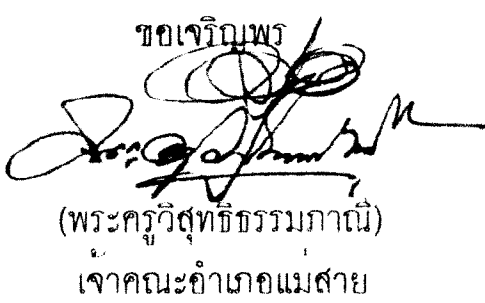 ขอเจริญพร
(พระครูวิสุทธิธรรมภาณี)
เจ้าคณะอำเภอแม่สาย